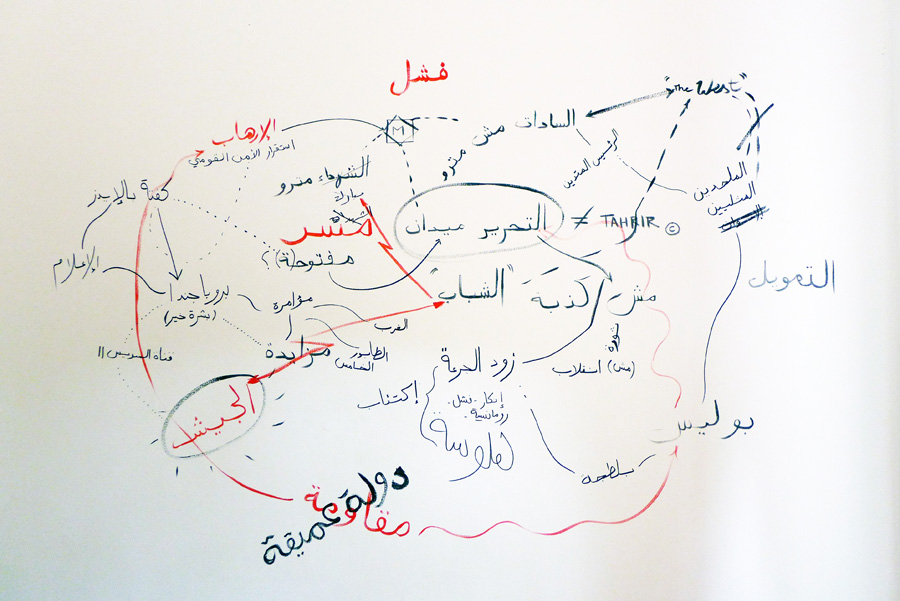 فشل
"The West"
السادات
مش مترو
M
الإرهاب
استقرار الأمن القومي
الرئيس المدين
الشهداء مترو
مبارك
كفتة بالإيدز
الملحدين
المثليين
التحرير ميدان
≠ TAHRIR ©
مفتوحة(؟)
الإعلام
التمويل
"الشباب"
كذبة
مش
بروباجندا
(بشرة خير)
مؤامرة
الغرب
ثورة
(مش) انقلاب
قناة السويس II
مزايدة
الطابور
الخامس
زود الجرعة
إكتئاب
إنكار. فشل.
رومانسية.
هلوسة
الجيش
بوليس
بلطجية
دولة عميقة
مقاومة